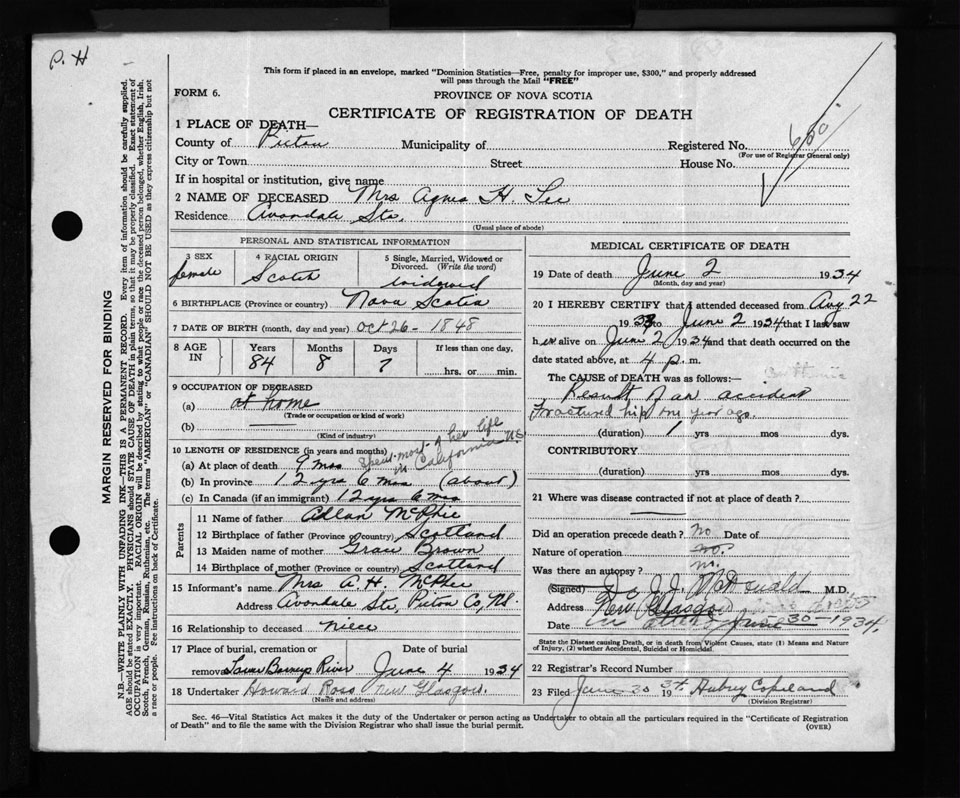 P. H
This form if placed in an envelope, marked "Dominion Statistics—Free, penalty for improper use, $300," and properly addressed
will pass through the Mail "FREE"
FORM 6.
PROVINCE OF NOVA SCOTIA
CERTIFICATE OF REGISTRATION OF DEATH
1 PLACE OF DEATH—
County of Pictou Municipality of Registered No.
(For use of Registrar General only)
City or Town Street House No.
If in hospital or institution, give name
2 NAME OF DECEASED Mrs Agnes H. Lee
Residence Avondale Stn,
(Usual place of abode)
PERSONAL AND STATISTICAL INFORMATION
3 SEX female
4 RACIAL ORIGIN Scotch
5 Single, Married, Widowed or Divorced. (Write the word) widowed
6 BIRTHPLACE (Province or country) Nova Scotia
7 DATE OF BIRTH (month, day and year) Oct 26 - 1848
8 AGE IN Years 84 Months 8 Days 7 If less than one day, hrs. or min.
9 OCCUPATION OF DECEASED
(a) at home
(Trade or occupation or kind of work)
(b)
(Kind of industry)
10 LENGTH OF RESIDENCE (in years and months)
Spent most of her life in California U.S.
(a) At place of death 9 mos
(b) In province 12 yrs 6 mos (about)
(c) In Canada (if an immigrant) 12 yrs 6 mos
Parents
11 Name of father Allan McPhie
12 Birthplace of father (Province or country) Scotland
13 Maiden name of mother Brown
14 Birthplace of mother (Province or country) Scotland
15 Informant's name Mrs A. H. McPhie
Address Avondale Stn, Pictou Co, NS
16 Relationship to deceased niece
17 Place of burial, cremation or removal Barneys River Date of burial June 4 1934
18 Undertaker Howard Ross New Glasgow.
(Name and address)
MEDICAL CERTIFICATE OF DEATH
19 Date of death June 2 1934
(Month, day and year)
20 I HEREBY CERTIFY that I attended deceased from Aug 22
193 to June 2 1934 that I last saw
her alive on June 2 1934 and that death occurred on the
date stated above, at 4 p.m.
The CAUSE of DEATH was as follows:—
Result of an accident
Fractured hip one year ago.
(duration) 1 yrs mos dys.
CONTRIBUTORY
(duration) yrs mos dys.
21 Where was disease contracted if not at place of death?
Did an operation precede death? no Date of
Nature of operation no.
Was there an autopsy? no.
(Signed) J. J. McDonald M.D.
Address New Glasgow
Date June 30 - 1934.
State the Disease causing Death, or in death from Violent Causes, state (1) Means and Nature of Injury, (2) whether Accidental, Suicidal or Homicidal.
22 Registrar's Record Number
23 Filed June 30 1934 Aubrey Copeland
(Division Registrar)
Sec. 46—Vital Statistics Act makes it the duty of the Undertaker or person acting as Undertaker to obtain all the particulars required in the "Certificate of Registration
of Death" and to file the same with the Division Registrar who shall issue the burial permit.
(OVER)
MARGIN RESERVED FOR BINDING
N.B.—WRITE PLAINLY WITH UNFADING INK—THIS IS A PERMANENT RECORD. Every item of information should be carefully supplied.
AGE should be stated EXACTLY. PHYSICIANS should STATE CAUSE OF DEATH in plain terms, so that it may be properly classified. Exact statement of
OCCUPATION is very important. RACIAL ORIGIN will be described by stating to what people or race the deceased person belonged, whether English, Irish,
Scotch, French, German, Russian, Ruthenian, etc. The terms "AMERICAN" or "CANADIAN" SHOULD NOT BE USED as they express citizenship but not
a race or people. See instructions on back of Certificate.